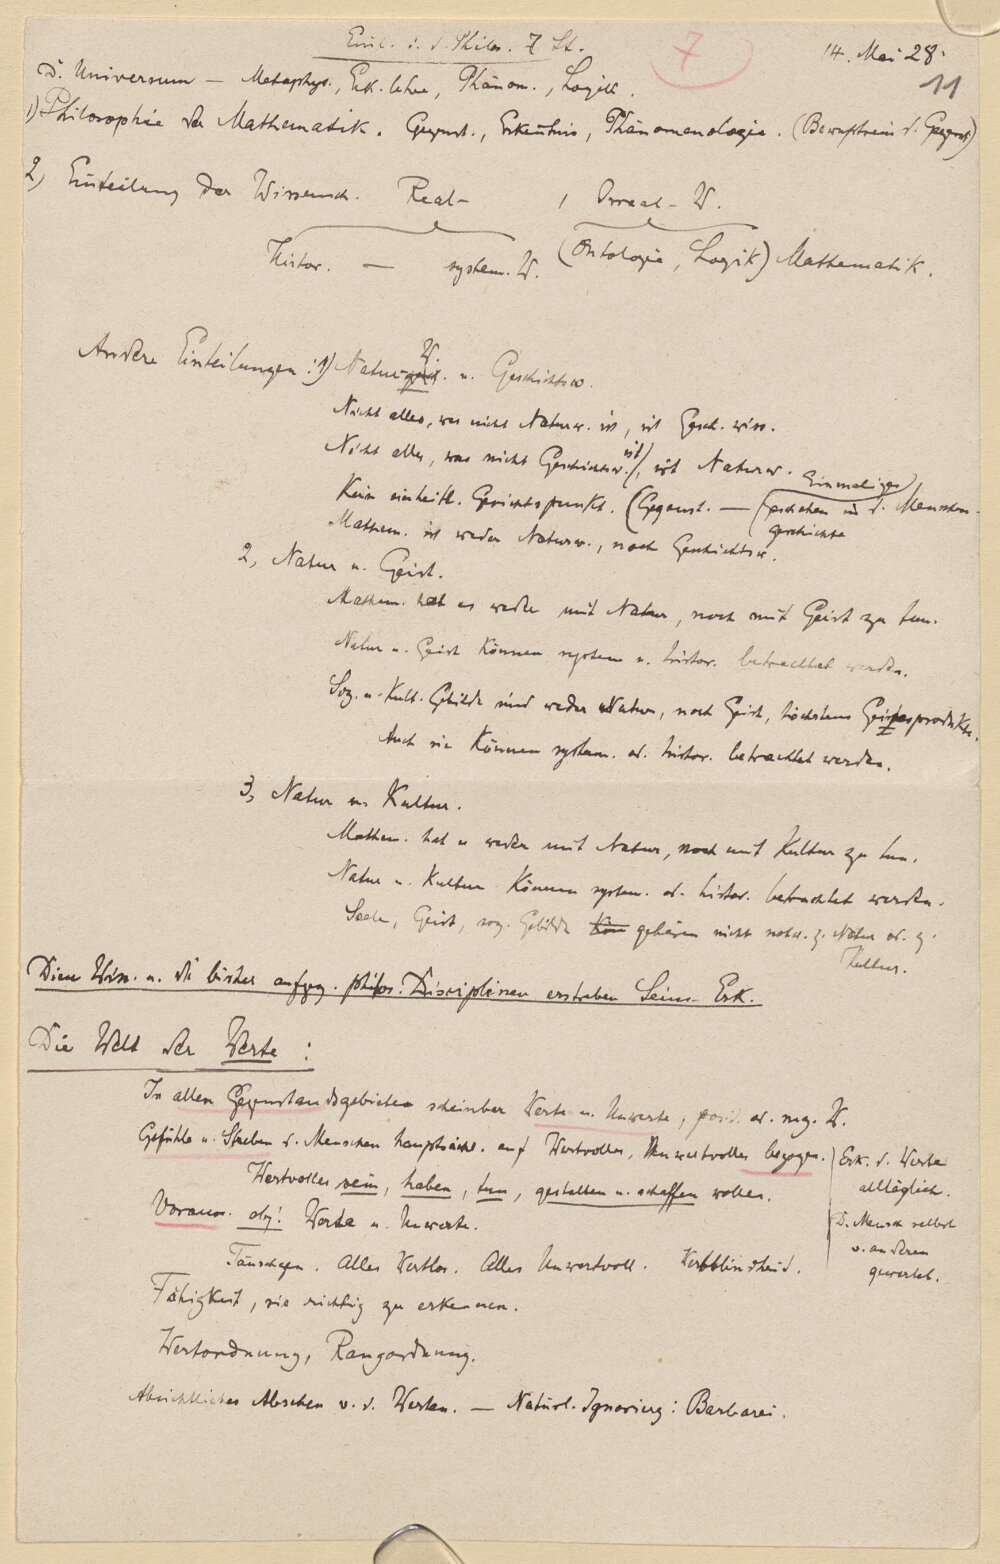 Einl. i. d. Philos. 7 St.
7
14. Mai 28.
11
D. Universum — Metaphys., Erk.lehre, Phänom., Logik.
1) Philosophie der Mathematik. Gegenst., Erkenntnis, Phänomenologie. (Bewußtsein d. Gegenst.)
2, Einteilung der Wissensch. Real- , Irreal-W.
Histor. — system. W. (Ontologie, Logik) Mathematik.
Andere Einteilungen: 1) Natur-W. u. Geschichtsw.
Nicht alles, was nicht Naturw. ist, ist Gesch. wiss.
Nicht alles, was nicht Geschichtsw. ist, ist Naturw.
Kein einheitl. Gesichtspunkt. (Gegenst. — (Einmaliges) geschehen in d. Menschengeschichte
Mathem. ist weder Naturw., noch Geschichtsw.
2, Natur u. Geist.
Mathem. hat es weder mit Natur, noch mit Geist zu tun.
Natur u. Geist können system u. histor. betrachtet werden.
Soz. u. Kult. Gebilde sind weder Natur, noch Geist, höchstens Geistesprodukte.
Auch sie können system. od. histor. betrachtet werden.
3, Natur u. Kultur.
Mathem. hat es weder mit Natur, noch mit Kultur zu tun.
Natur u. Kultur können system. od. histor. betrachtet werden.
Seele, Geist, soz. Gebilde Kön gehören nicht notw. z. Natur od. z.
Kultur.
Diese Wiss. u. die bisher aufgez. philos. Disciplinen erstreben Seins-Erk.
Die Welt der Werte:
In allen Gegenstandsgebieten scheinbar Werte u. Unwerte, posit. od. neg. W.
Gefühle u. Streben d. Menschen hauptsächl. auf Wertvolles, Unwertvolles bezogen.
Erk. d. Werte
alltäglich.
Wertvolles sein, haben, tun, gestalten u. schaffen wollen.
Voraus. obj! Werte u. Unwerte.
D. Mensch selbst
v. anderen
gewertet.
Täuschgen. Alles Wertlos. Alles Unwertvoll. Wertblindheit.
Fähigkeit, sie richtig zu erkennen.
Wertordnung, Rangordnung.
Absichtliches Absehen v. d. Werten. — Natürl. Ignorierg: Barbarei.